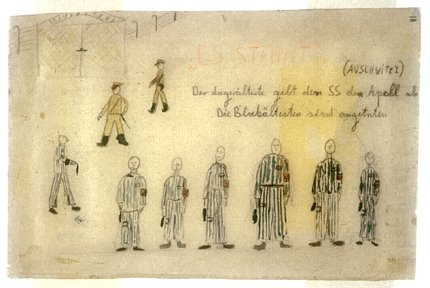 "ES STIMMT"
(AUSCHWITZ)
Der Lagerälteste gibt dem SS den Apell ab
Die Blockältesten sind angetreten